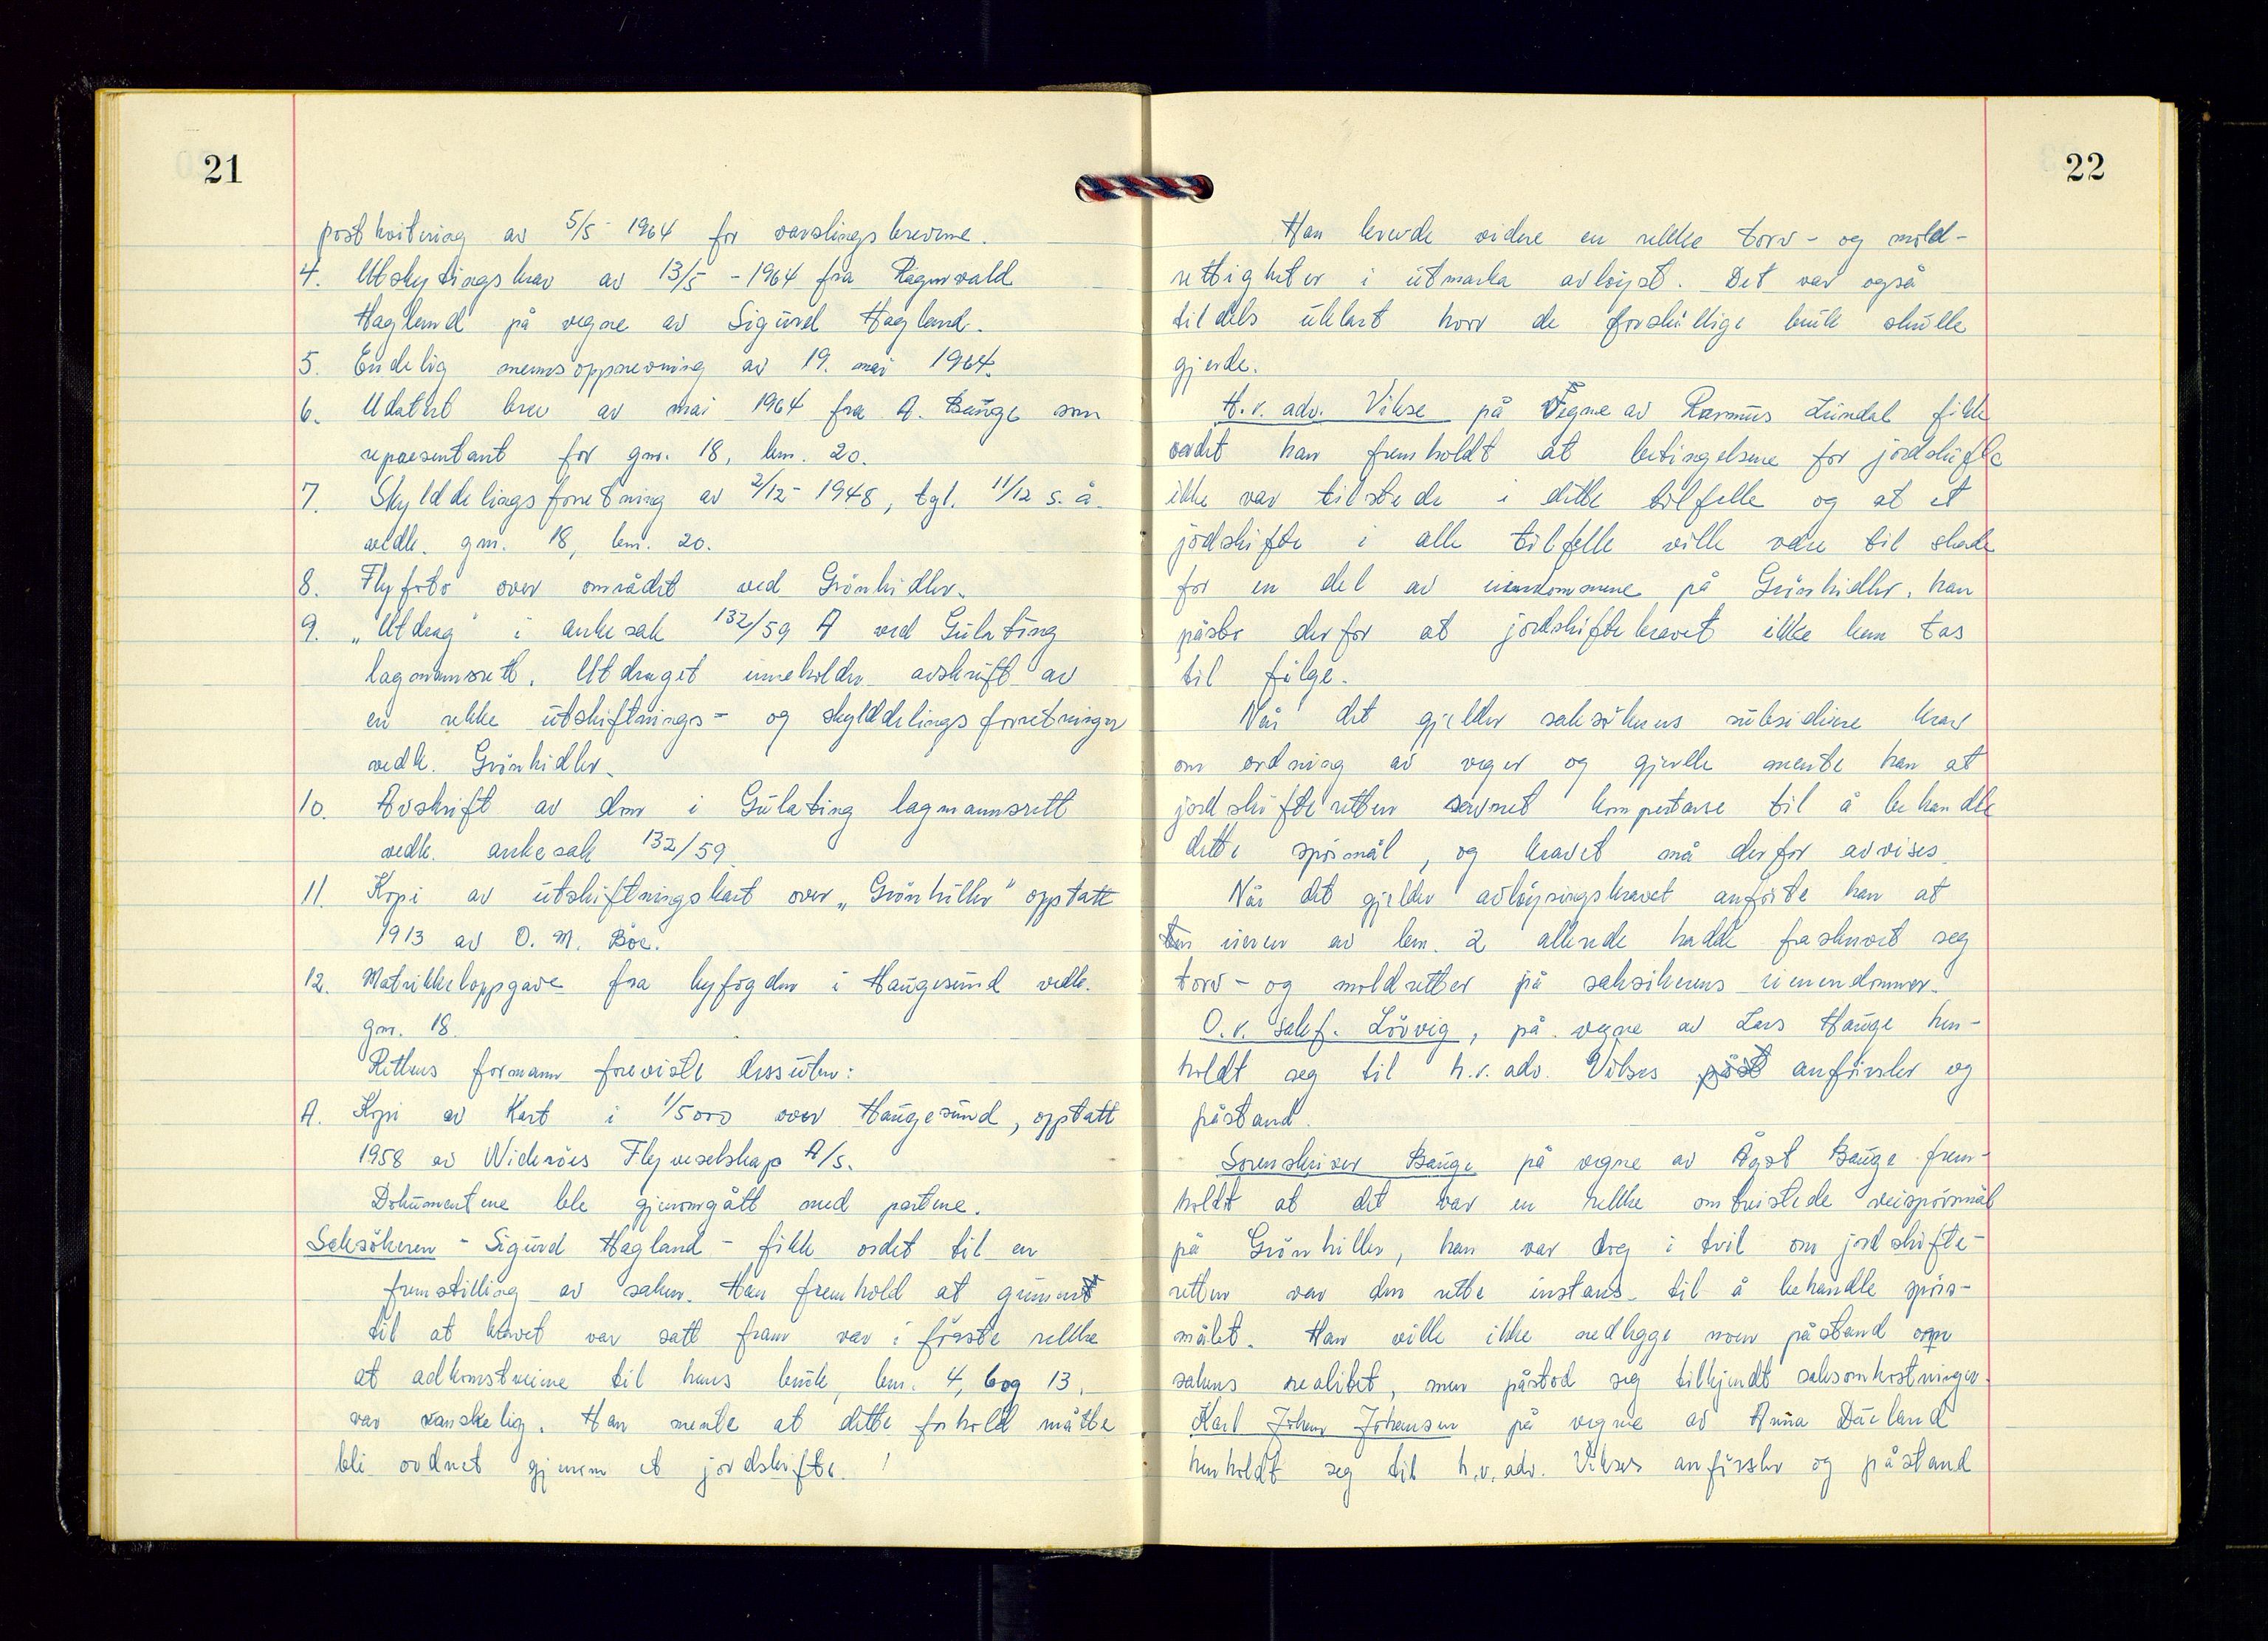 21
postkvitering av 5/5 1964 for varslingsbrevene.
4. Utskytingskrav av 13/5 - 1964 fra Ragnvald
Hagland på vegne av Sigurd Hagland.
5. Endelig mennsoppnevning av 19. mai 1964.
6. Udatert brev av mai 1964 fra A. Bauge som
repræsentant for gnr. 18, bnr. 20.
7. Skylddelingsforretning av 2/12 - 1948, tgl. 11/12 s. å.
vedk. gnr. 18, bnr. 20.
8. Flyfoto over området ved Grönhidler.
9. „Utdrag" i ankesak 132/59 A ved Gulating
lagmannsrett. Utdraget inneholder avskrift av
en rekke utskiftnings- og skylddelingsforretninger
vedk. Grönhidler.
10. Avskrift av dom i Gulating lagmannsrett
vedk. ankesak 132/59.
11. Kopi av utskiftningskart over „Grönhiller" opptatt
1913 av O. M. Böe.
12. Matrikkeloppgave fra byfogden i Haugesund vedk.
gnr. 18.
Rettens formann foreviste dessuten:
A. Kopi av Kart i 1/5000 over Haugesund, opptatt
1958 av Wideröes Flyveselskap A/S.
Dokumentene ble gjenomgått med partene.
Saksökeren - Sigurd Hagland - fikk ordet til en
fremstilling av saken. Han fremhold at grunnen
til at kravet var satt fram var i förste rekke
at adkomstveiene til hans bruk, bnr. 4, 6 og 13,
var vanskelig. Han mente at dette forhold måtte
bli ordnet gjenom et jordskifte.
22
Han krevde videre en rekke torv- og mold-
rettigheter i utmarka avlöyst. Det var også
tildels uklart hvor de forskillige bruk skulle
gjerde.
H.r. adv. Vikse på vegne av Rasmus Lundal fikk
ordet han fremholdt at betingelsene for jordskifte
ikke var tilstede i dette tilfelle og at et
jordskifte i alle tilfelle ville være til skade
for en del av eiendommene på Grönhidler, han
påsto derfor at jordskiftekravet ikke kan tas
til fölge.
Når det gjelder saksökerens subsidiære krav
om ordning av veger og gjerde mente han at
jordskifteretten savnet kompetanse til å behandle
dette spörsmål, og kravet må derfor avvises.
Når det gjelder avlöysingskravet anförte han at
eieren av bnr. 2 allerede hadde fraskrevet seg
torv- og moldretter på saksökerens eienendommer.
O.r. sakf. Lövvig, på vegne av Lars Hauge hen-
holdt seg til h.r. adv. Vikses påst anförsler og
påstand.
Sorenskriver Bauge på vegne av Ågot Bauge frem-
holdt at det var en rekke omtvistede veispörsmål
på Grönhiller, han var dog i tvil om jordskifte-
retten var den rette instans til å behandle spörs-
målet. Han ville ikke nedlegge noen påstand om
sakens realitet, men påstod seg tilkjendt saksomkostninger.
Karl Johan Johansen på vegne av Anna Dueland
henholdt seg til h.r. adv. Vikses anförsler og påstand